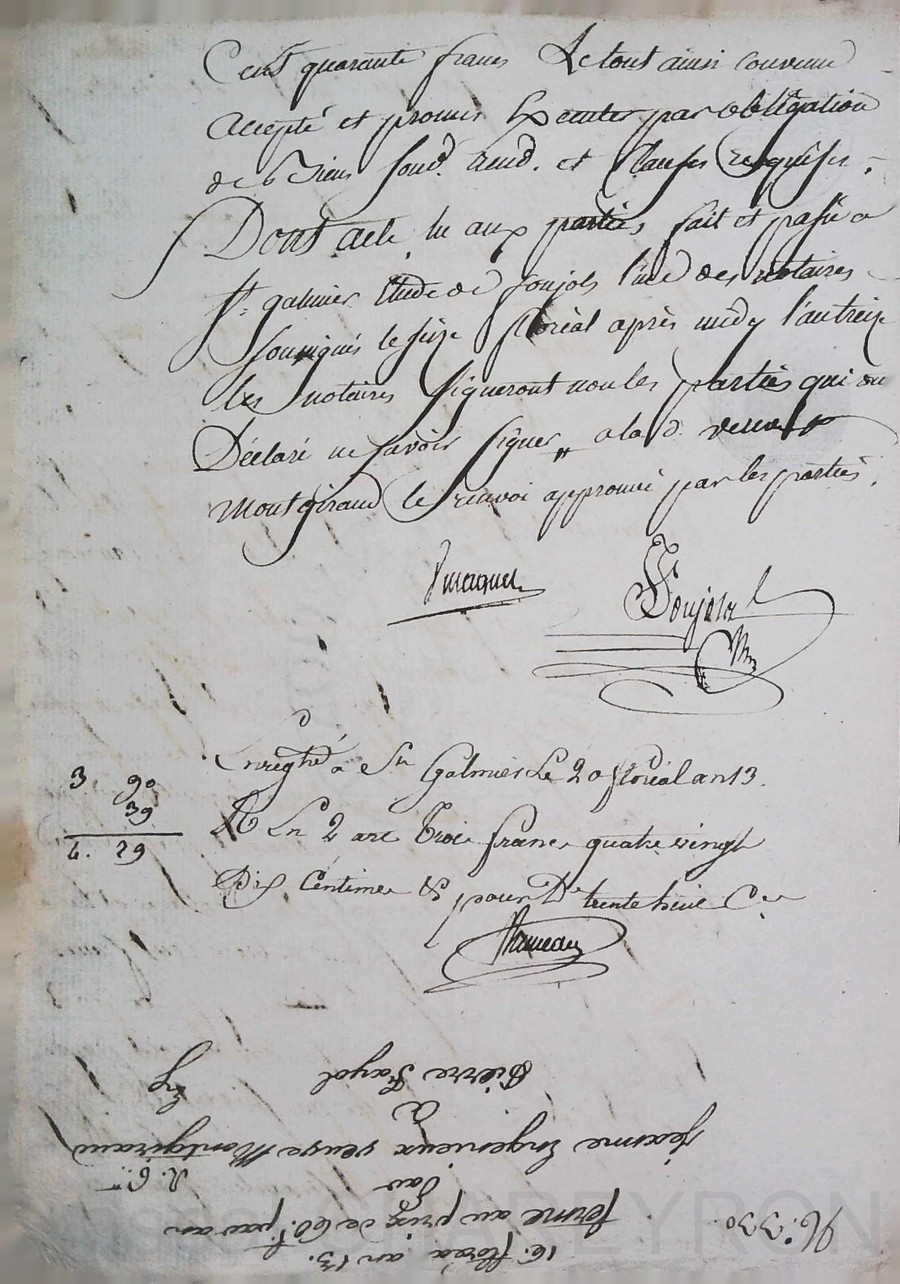 Cent quarante francs Le tout ainsi convenu
Accepté et promis Executer par obligation
de biens soud. rend. et Clauses requises.
Dont acte, lu aux parties, fait et passé a
St. galmier Etude de Soujols l'un des notaires
soussignés le seize floréal après midy l'an treize
les notaires signeront non les parties qui ont
Déclaré ne savoir signer,, a la d. veuve
Montgiraud le renvoi approuvé par les parties.
Soujols
3. 90
39
4. 29
Enregtré à St Galmier Le 20 floréal an 13.
R Ln 2 art trois francs quatre vingt
Dix Centimes & pour De trente neuf Ces
16. floréa an 13.
N°. 330.
ferme au prix de 60f. par an
par
R. 6
Jeanne Ingenieux veuve Montgiraud
a
Pierre Fayol
BEYRON